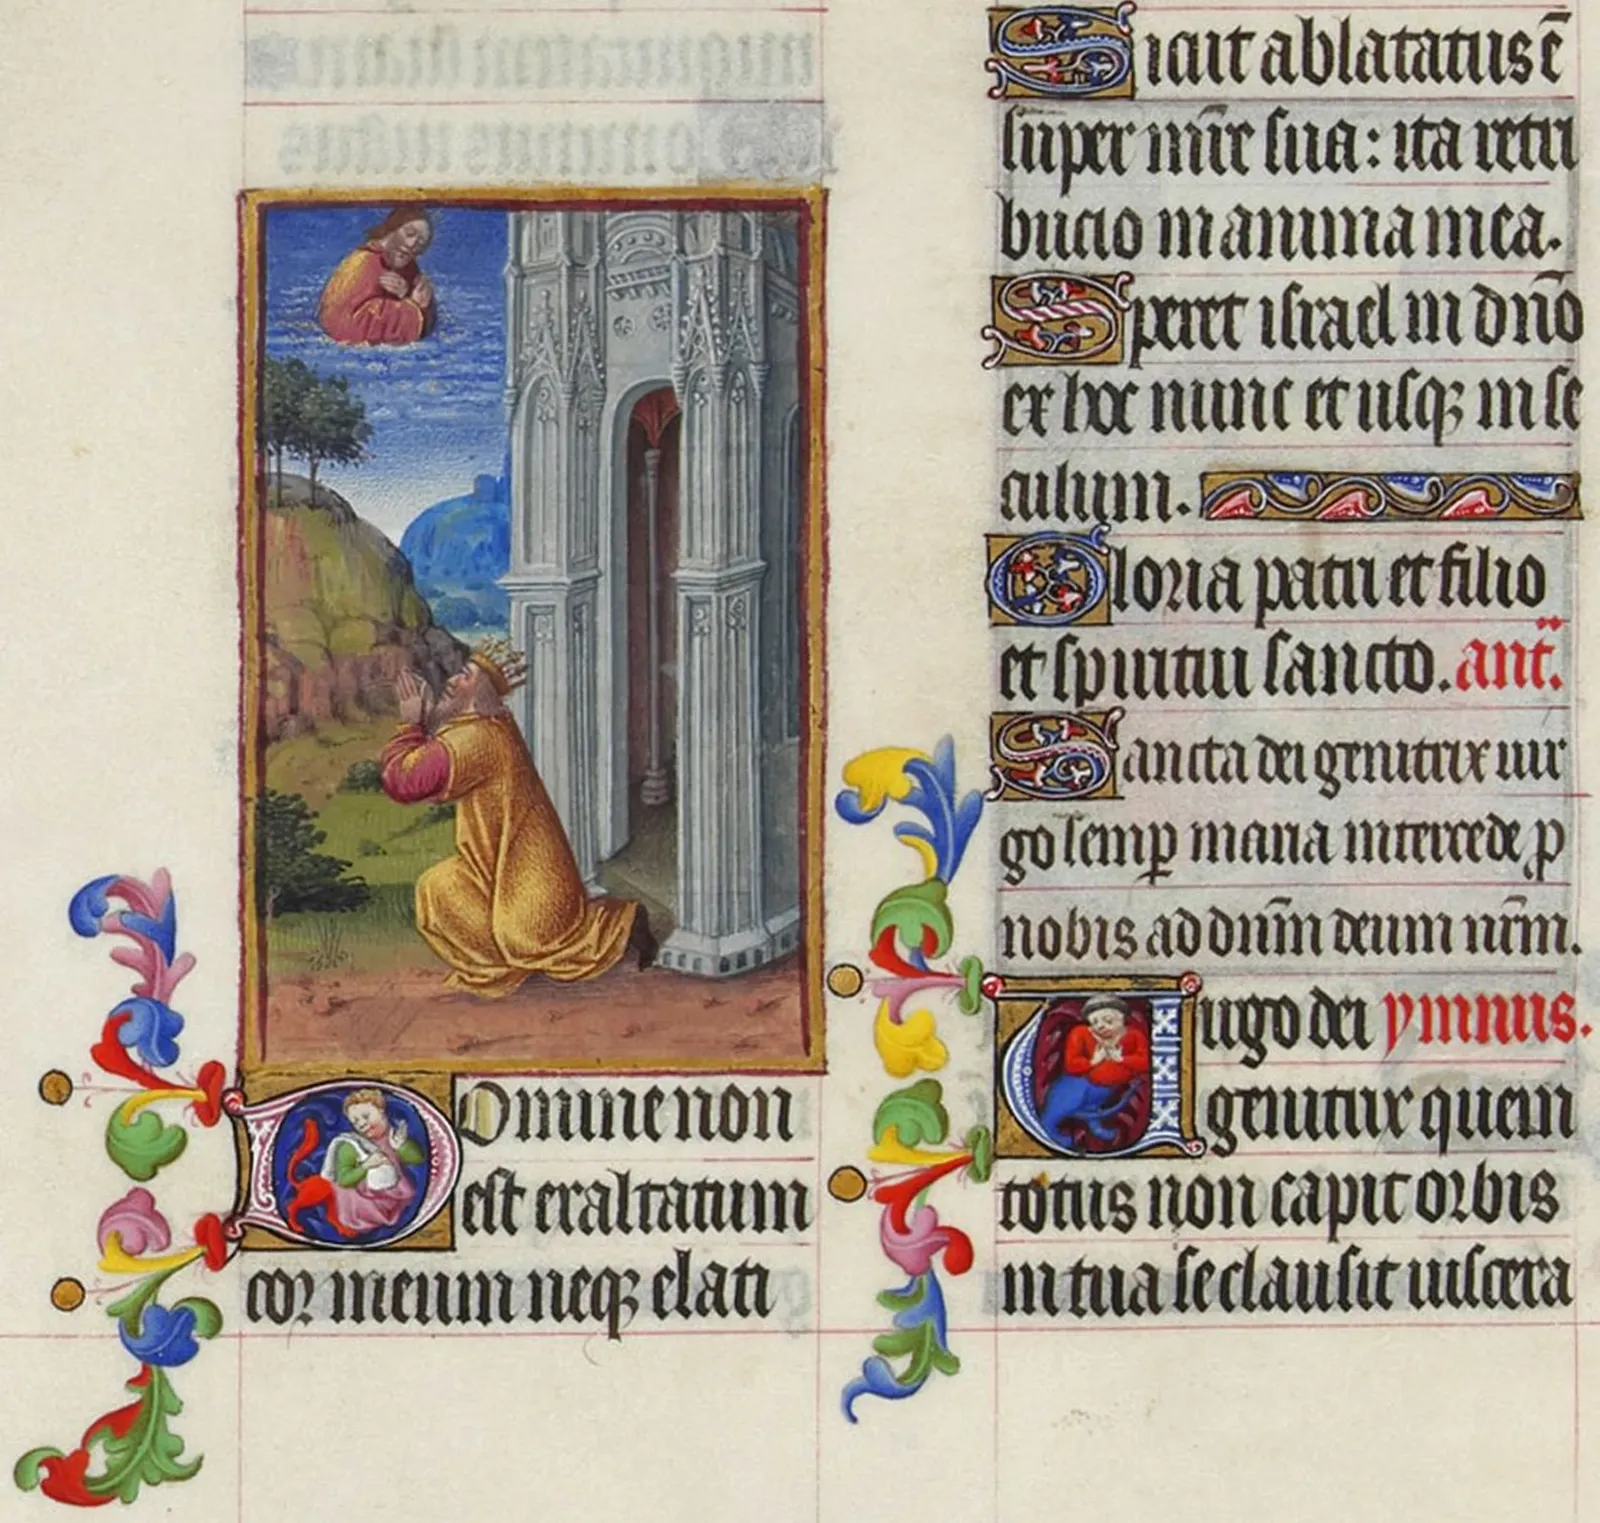 Domine non
est exaltatum
cor meum neqꝫ elati
Sicut ablatatus ē
super mr̄e sua: ita retri
bucio in anima mea.
Speret israel in dn̄o
ex hoc nunc et usqꝫ in se
culum.
Gloria patri et filio
et spiritui sancto. ant̄.
Sancta dei genitrix vir
go semꝑ maria intercede ꝑ
nobis ad dn̄m deum nr̄m.
Virgo dei ymnus.
genitrix quem
totus non capit orbis
in tua se clausit viscera